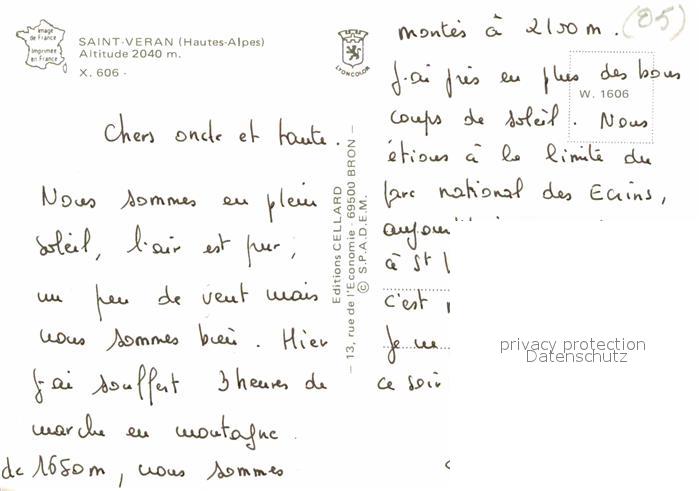 Image
de France
Imprimée
en France
SAINT-VERAN (Hautes-Alpes)
Altitude 2040 m.
X. 606 -
LYONCOLOR
Chers oncle et tante.
Nous sommes en plein
soleil, l'air est pur,
un peu de vent mais
nous sommes bien. Hier
j'ai souffert 3 heures de
marche en montagne.
de 1650m, nous sommes
Editions CELLARD
– 13, rue de l'Economie - 69500 BRON –
© S.P.A.D.E.M.
(05)
montés à 2150 m.
J'ai pris en plus des bons
W. 1606
coups de soleil. Nous
étions à la limite du
parc national des Ecrins,
à St
c'est
Je
ce soir
privacy protection
Datenschutz